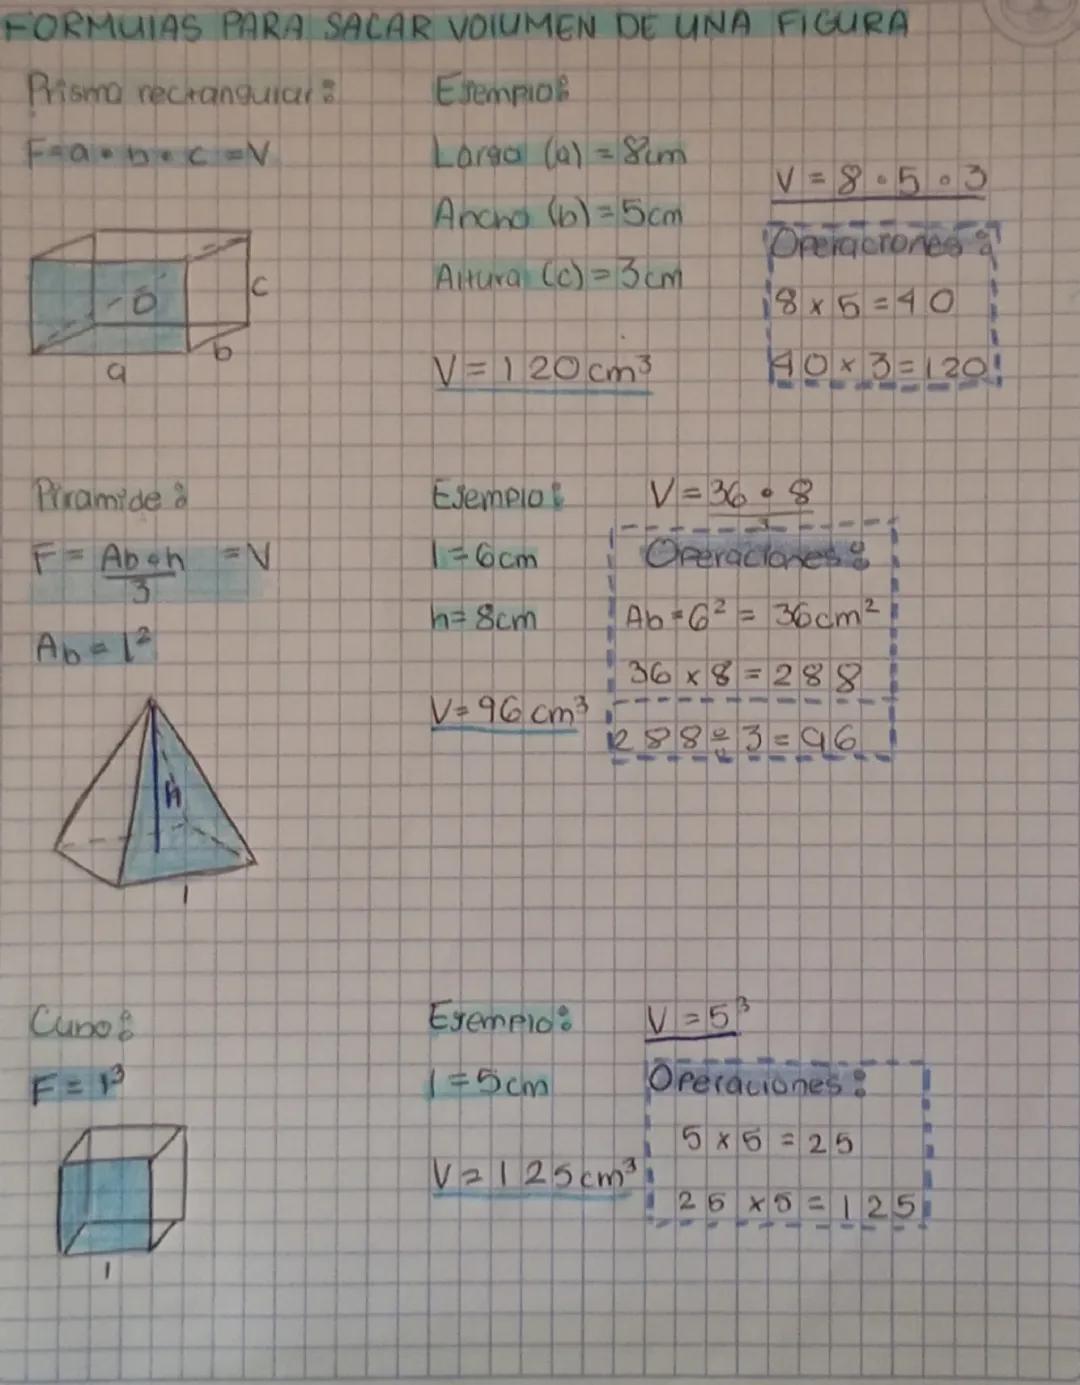 FORMUlAS PARA SACAR VOlUMEN DE UNA FIGURA
Prisma rectangular:
F=a•b•c=V
Ejemplo:
Largo (a) = 8cm
Ancho (b) = 5cm
Altura (c) = 3cm
V = 120 cm³
V = 8 • 5 • 3
Operaciones:
8 x 5 = 40
40 x 3 = 120
c
b
a
Piramide:
F = Ab•h = V
3
Ab = l²
Ejemplo:
l = 6cm
h = 8cm
V = 96 cm³
V = 36 • 8
3
Operaciones:
Ab = 6² = 36cm²
36 x 8 = 288
288 ÷ 3 = 96
h
l
Cubo:
F = l³
Ejemplo:
l = 5cm
V = 125cm³
V = 5³
Operaciones:
5 x 5 = 25
25 x 5 = 125
l